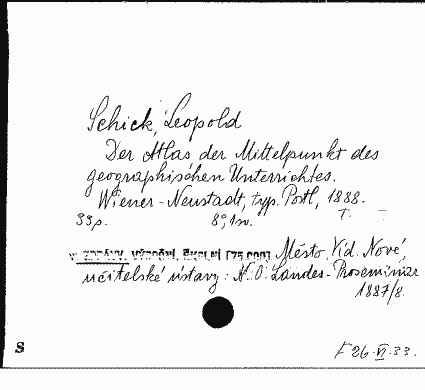 Schick, Leopold
Der Atlas der Mittelpunkt des
geographischen Unterrichtes.
Wiener-Neustadt, typ. Pottl, 1888.
33p. 8°, 1sv. T.
v: ZPRÁVY. VÝROČNÍ. ŠKOLNÍ [75.000]. Město, Víd. Nové,
učitelské ústavy: N. Ö. Landes-Proseminar
1887/8.
S F 26.VI.33.